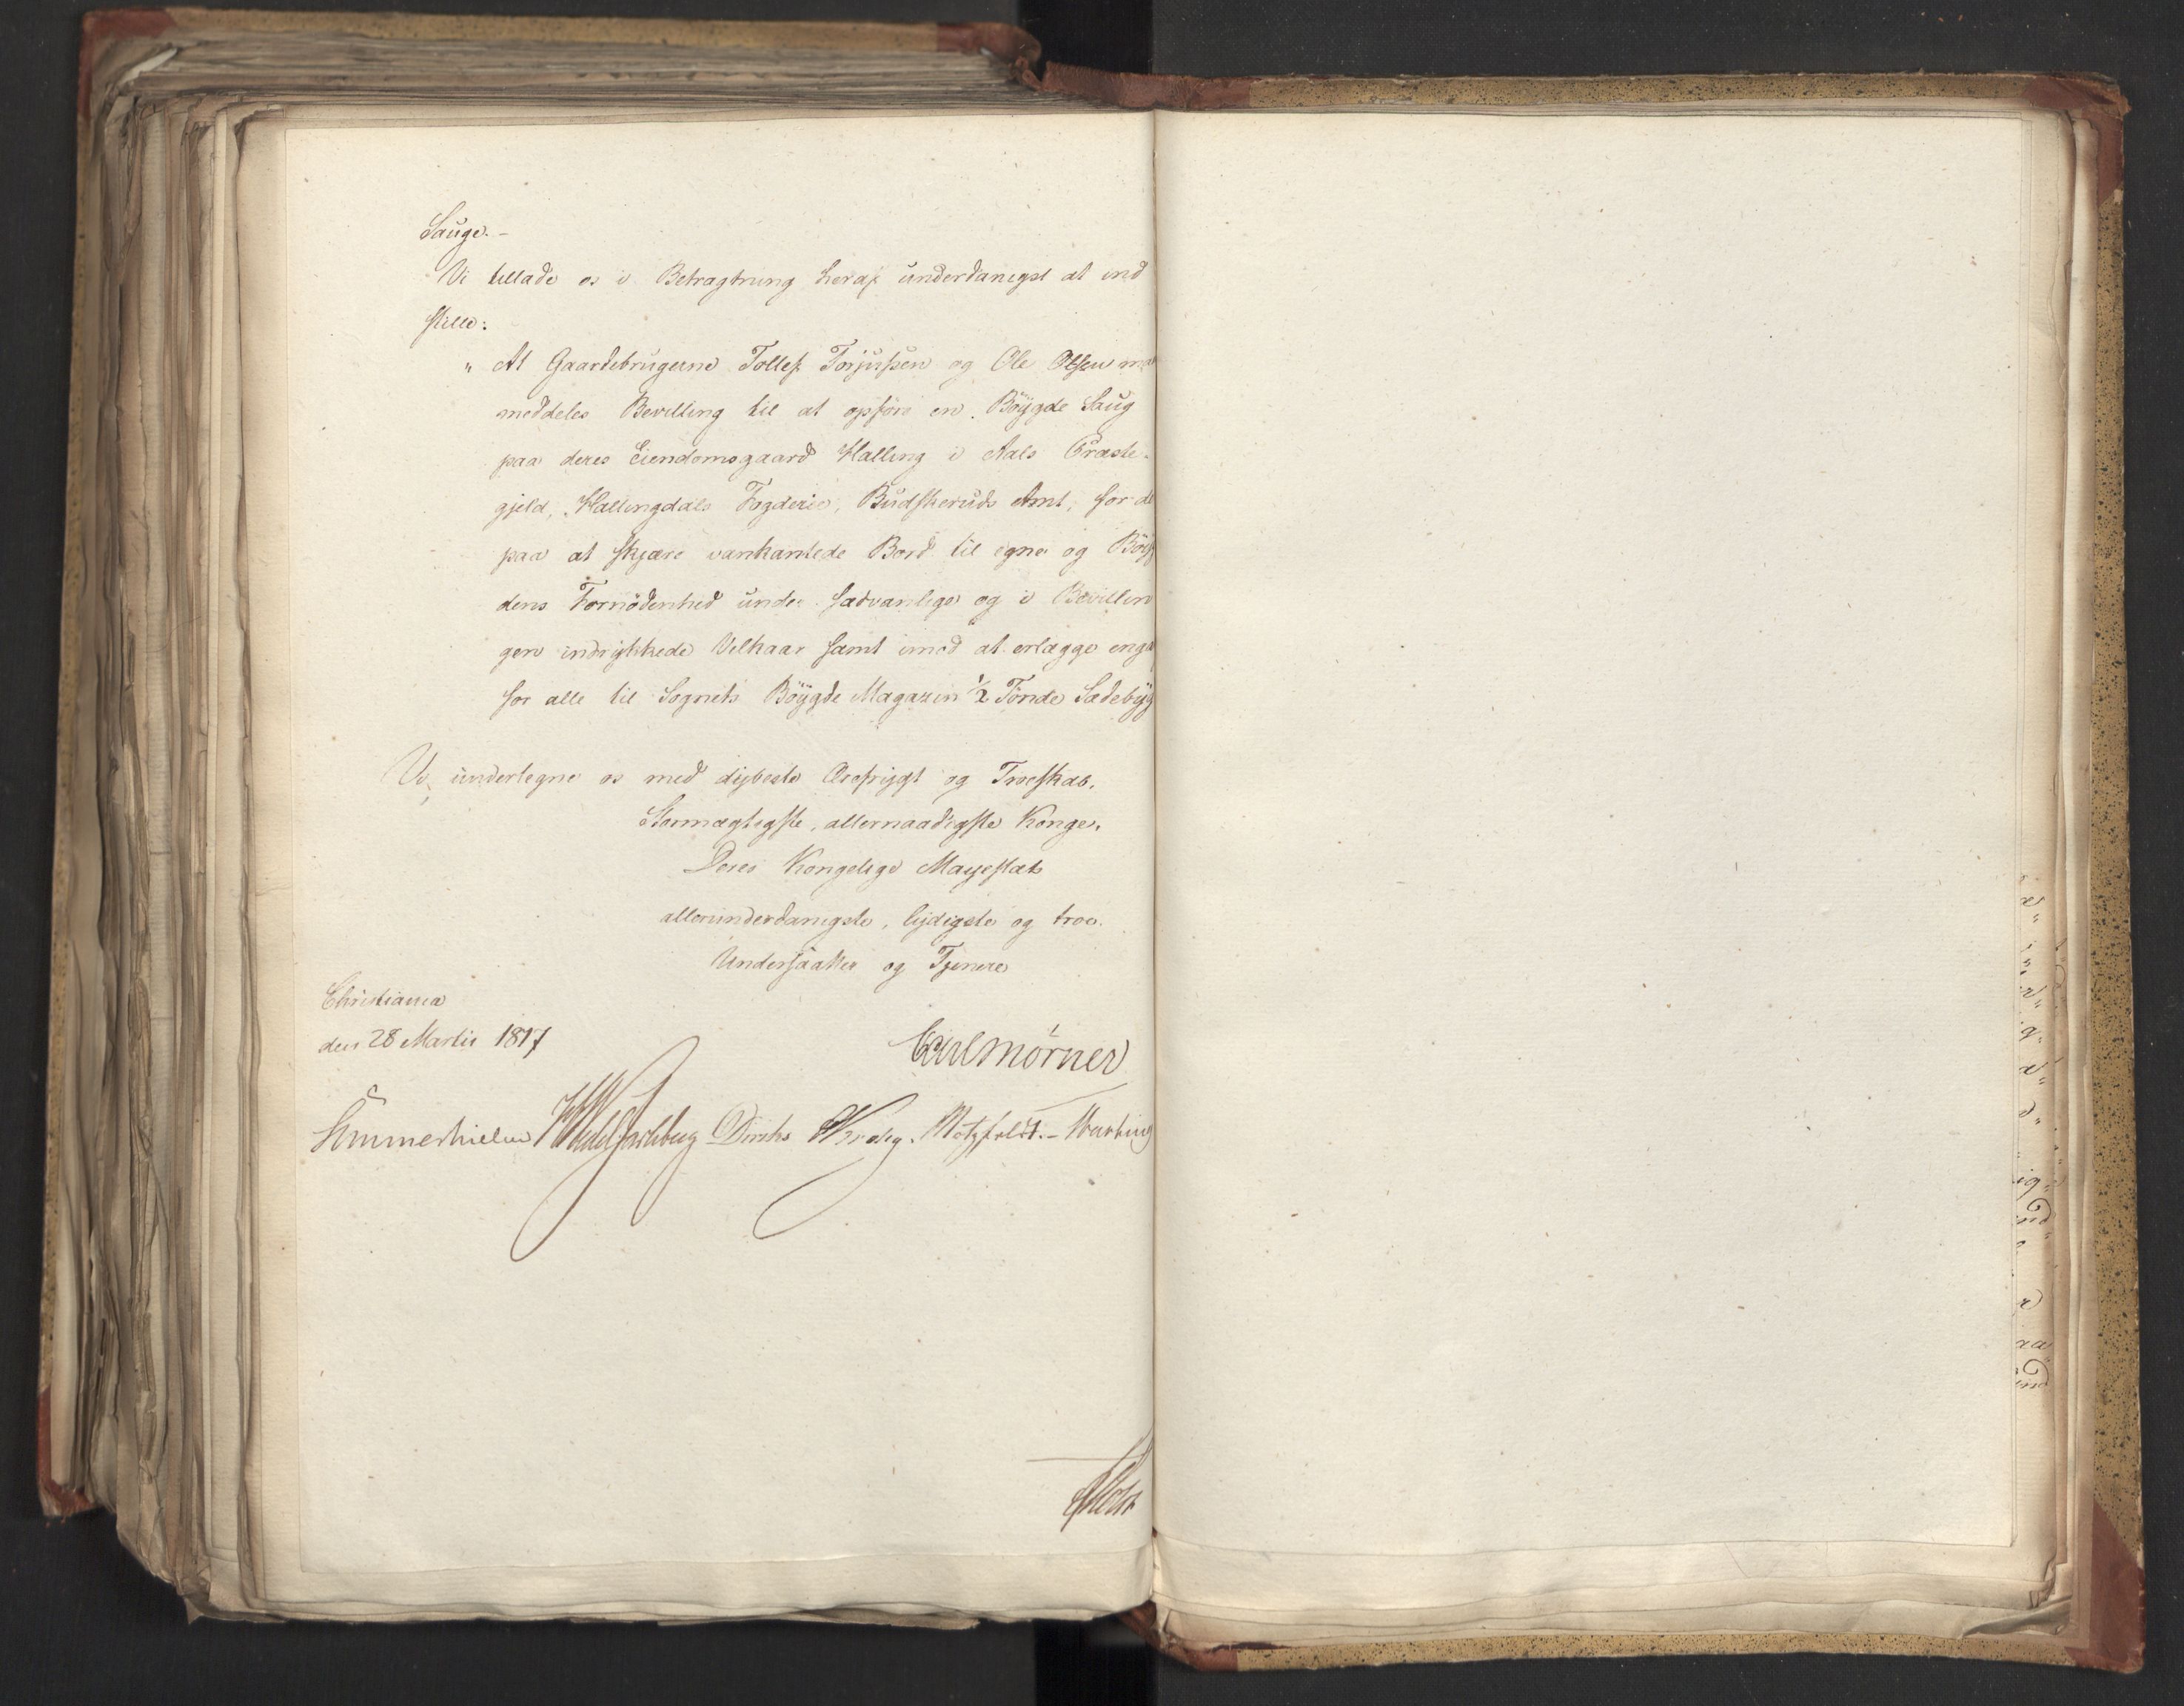 Sauge. -
Vi tillade os i Betragtning heraf underdanigst at ind
stille:
" At Gaardebrugerne Tollef Torjussen og Ole Olsen maa
meddeles Bevilling til at opføre en Böygde Saug
paa deres Eiendomsgaard Halling i Aals Præste-
gjeld, Hallingdals Fogderie, Budskeruds Amt, for der
paa at skjære vankantede Bord til egne og Böig
dens Fornödenhed under sædvanlige og i Bevillin
gen indrykkede Vilkaar samt imod at erlægge engang
for alle til Sognets Böygde Magazin ½ Tönde Sædebyg
Vi undertegne os med dybeste Ærefrygt og Troeskab.
Stormægtigste, allernaadigste Konge,
Deres Kongelige Mayestæts
allerunderdanigste, lydigste og troe
Undersaatter og Tjenere
Christiania
den 28 Martii 1817
Carl Mörner
Sommerhielm HWedelJarlsberg Diriks Krohg. Motzfeldt. -
Holst